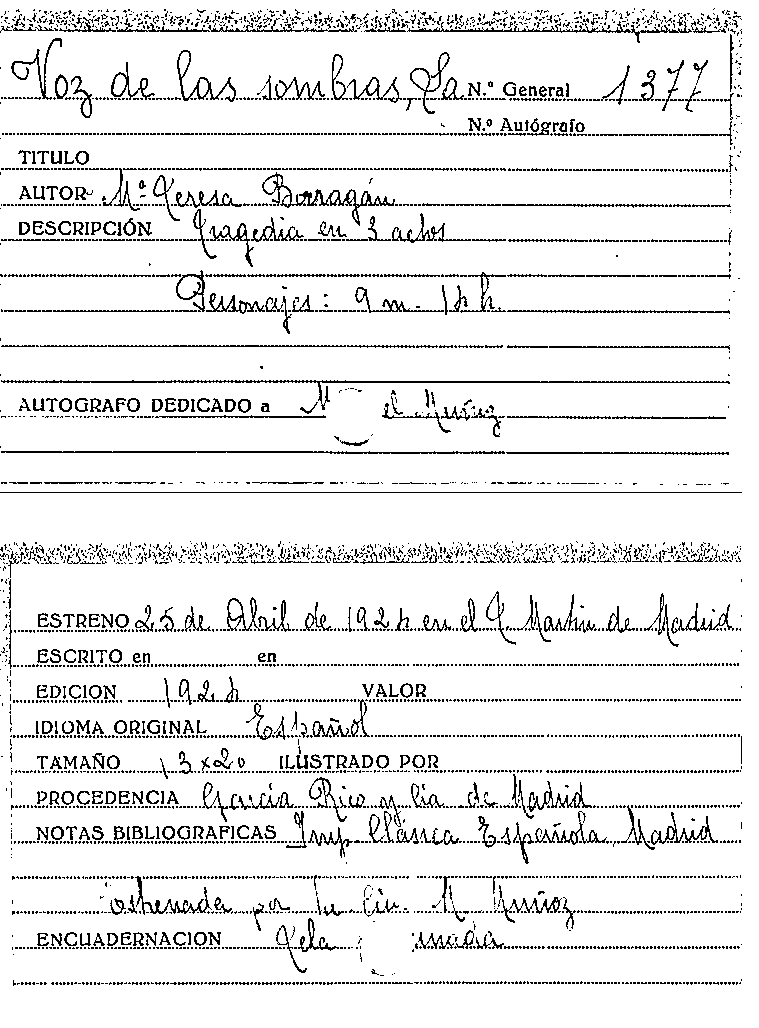 Voz de las sombras, La N.º General 1377
N.º Autógrafo
TITULO
AUTOR Mª Teresa Borragán
DESCRIPCIÓN Tragedia en 3 actos
Personajes: 9 m. 14 h.
AUTOGRAFO DEDICADO a el Muñoz
ESTRENO 25 de Abril de 1924 en el T. Martin de Madrid
ESCRITO en en
EDICION 1924 VALOR
IDIOMA ORIGINAL Español
TAMAÑO 13x20 ILUSTRADO POR
PROCEDENCIA García Rico y Cia de Madrid
NOTAS BIBLIOGRAFICAS Imp. Clásica Española, Madrid
estrenada por la Cia. M Muñoz
ENCUADERNACION Tela